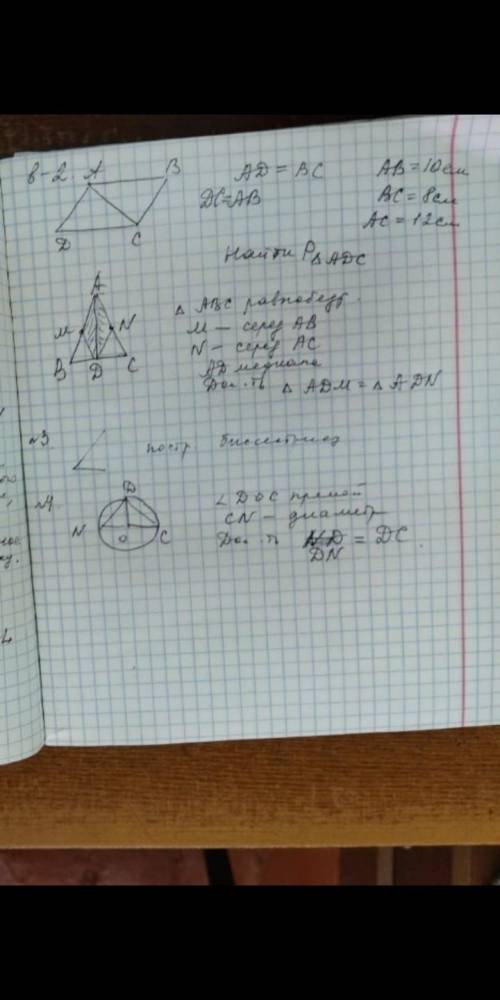 в-2. A B AD = BC AB = 10см
DC = AB BC = 8см
D C AC = 12см
Найти P△ADC
A
△ ABC равнобедр.
M N M – серед AB
N – серед AC
B D C AD медиана
Док-ть △ ADM = △ ADN
№3 постр биссектрису
№4 D ∠DOC прямой
N O C CN – диаметр
Док-ть DN = DC.